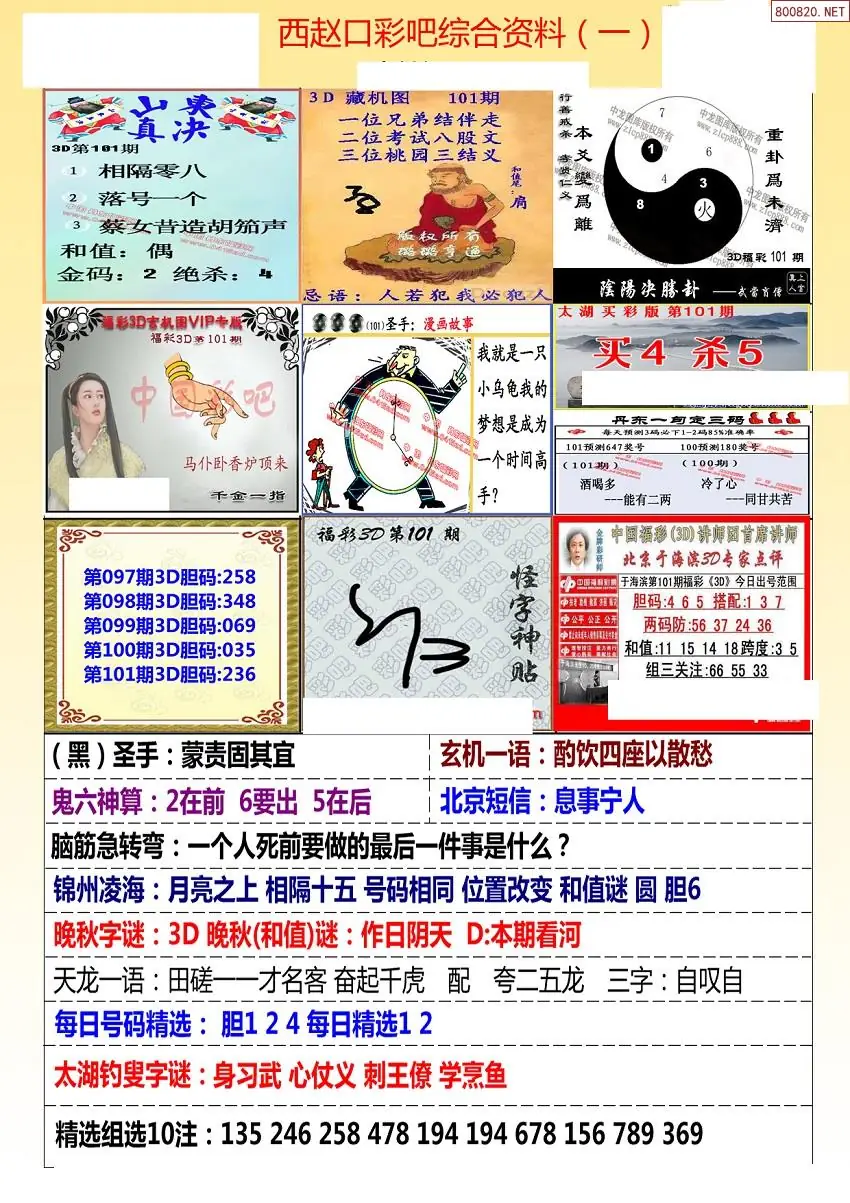 800820.NET
西赵口彩吧综合资料（一）
3D第101期
1 相隔零八
2 落号一个
3 蔡女昔造胡笳声
和值：偶
金码：2 绝杀：4
3D 藏机图 101期
一位兄弟结伴走
二位考试八股文
三位桃园三结义
和值尾：肩
版权所有
忌语：人若犯我必犯人
本爻變爲離
重卦爲未濟
7
1
6
4
3
8
火
3D福彩101期
陰陽決勝卦 ——武當肖僧
福彩3D玄机图VIP专版
福彩3D第101期
中国彩吧
马仆卧香炉顶来
千金一指
(101)圣手：漫画故事
我就是一只
小乌龟我的
梦想是成为
一个时间高
手?
太湖买彩版 第101期
买4 杀5
丹东一句定三码
每天预测3码必下1-2码85%准确率
101预测647奖号 100预测180奖号
(101期) (100期)
酒喝多 冷了心
---能有二两 ---同甘共苦
第097期3D胆码:258
第098期3D胆码:348
第099期3D胆码:069
第100期3D胆码:035
第101期3D胆码:236
福彩3D第101 期
怪字神贴
金牌彩研师
中国福彩(3D)讲师团首席讲师
北京于海滨3D专家点评
中国福利彩票
于海滨第101期福彩《3D》今日出号范围
胆码:4 6 5 搭配:1 3 7
两码防:56 37 24 36
公平 公正 公开
和值:11 15 14 18跨度:3 5
组三关注:66 55 33
(黑)圣手：蒙责固其宜
玄机一语：酌饮四座以散愁
鬼六神算：2在前 6要出 5在后
北京短信：息事宁人
脑筋急转弯：一个人死前要做的最后一件事是什么？
锦州凌海：月亮之上 相隔十五 号码相同 位置改变 和值谜 圆 胆6
晚秋字谜：3D 晚秋(和值)谜：作日阴天 D:本期看河
天龙一语：田磋一一才名客 奋起千虎 配 夸二五龙 三字：自叹自
每日号码精选： 胆1 2 4 每日精选1 2
太湖钓叟字谜：身习武 心仗义 刺王僚 学烹鱼
精选组选10注：135 246 258 478 194 194 678 156 789 369